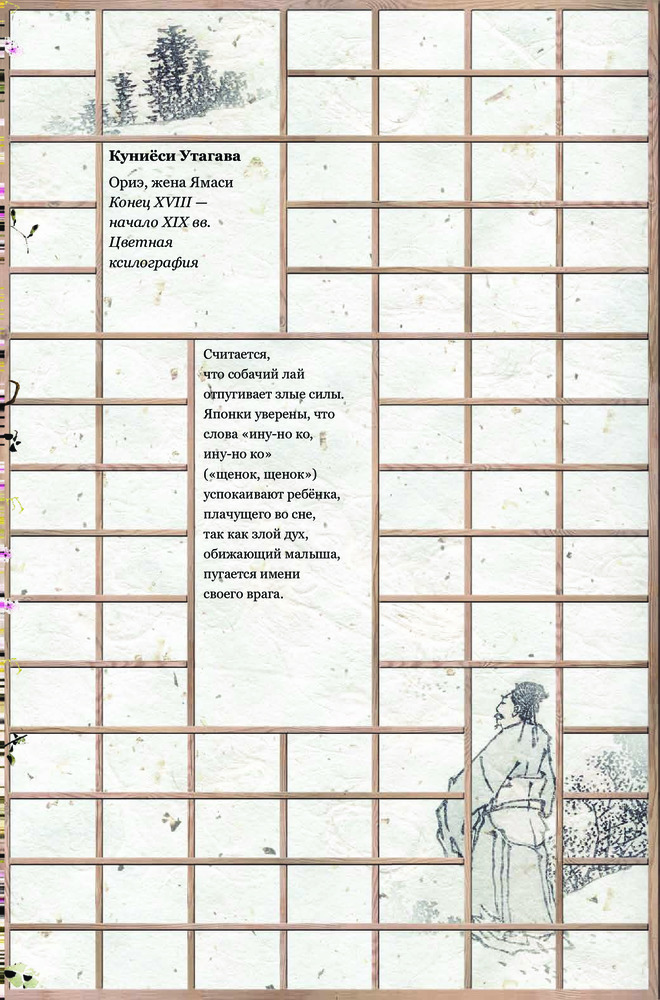 Куниёси Утагава
Ориэ, жена Ямаси
Конец XVIII —
начало XIX вв.
Цветная
ксилография
Считается,
что собачий лай
отпугивает злые силы.
Японки уверены, что
слова «ину-но ко,
ину-но ко»
(«щенок, щенок»)
успокаивают ребёнка,
плачущего во сне,
так как злой дух,
обижающий малыша,
пугается имени
своего врага.